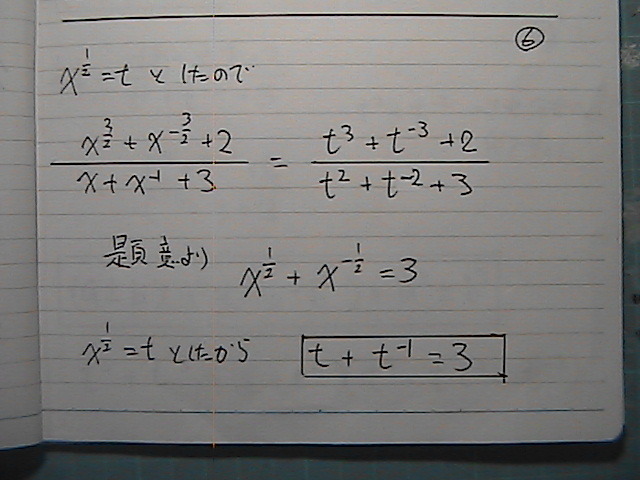 ⑥
x^{1/2} = t としたので
\frac{x^{3/2} + x^{-3/2} + 2}{x + x^{-1} + 3} = \frac{t^3 + t^{-3} + 2}{t^2 + t^{-2} + 3}
題意より x^{1/2} + x^{-1/2} = 3
x^{1/2} = t としたから t + t^{-1} = 3